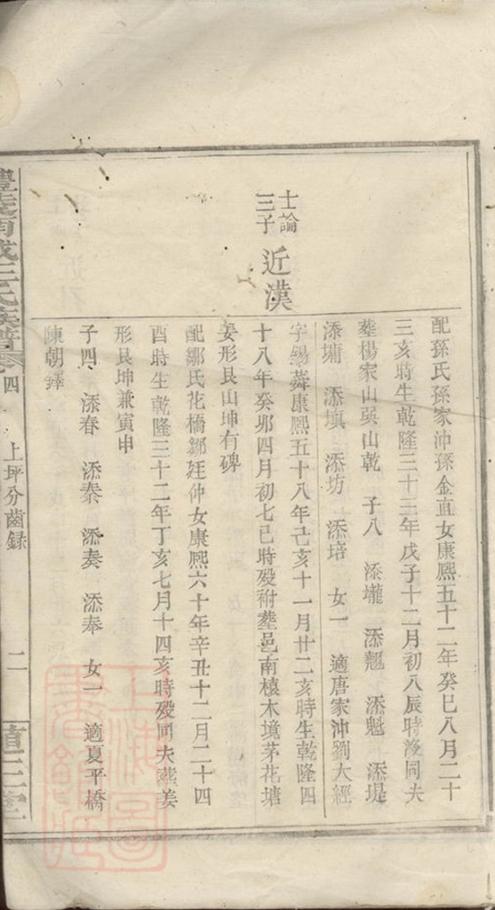 士論
三子
近漢
配孫氏孫家沖孫金直女康熙五十二年癸巳八月二十
三亥時生乾隆三十三年戊子十二月初八辰時歿同夫
塟楊家山巽山乾 子八 添壠 添魁 添堤
添墉 添塡 添坊 添培 女一 適唐家沖劉大經
字錫 康熙五十八年己亥十一月廿二亥時生乾隆四
十八年癸卯四月初七巳時歿祔塟邑南櫝木境茅花塘
姜形艮山坤有碑
配鄒氏花橋鄒廷仲女康熙六十年辛丑十二月二十四
酉時生乾隆三十二年丁亥七月十四亥時歿同夫塟姜
形艮坤兼寅申
子四 添春 添泰 添奏 添奉 女一 適夏平橋
陳朝鐸
王氏族譜 卷四
上坪分齒錄
二
三